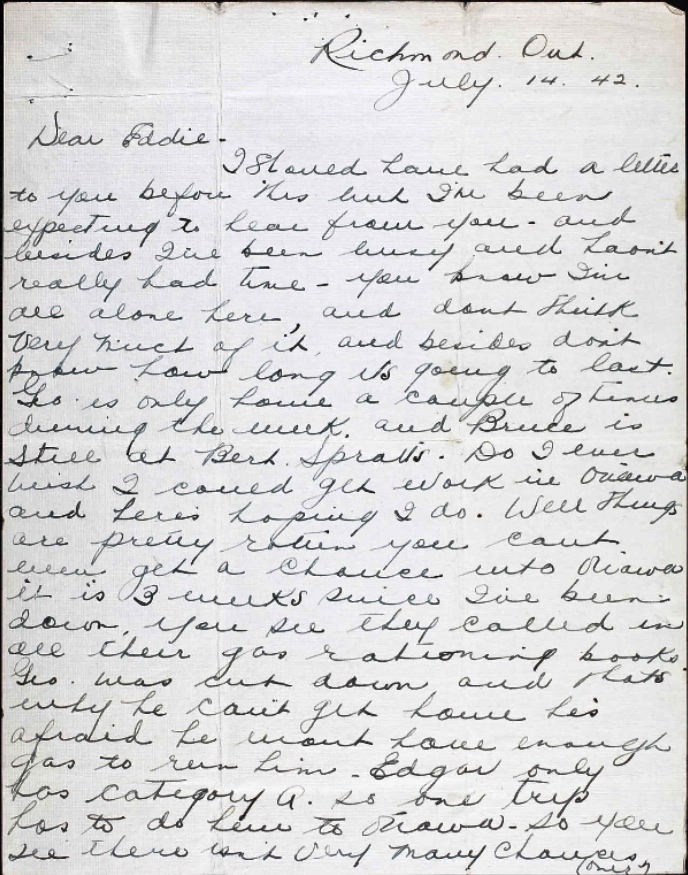 Richmond. Ont.
July. 14. 42.
Dear Eddie -
I Should have had a letter
to you before this but I'm been
expecting to hear from you - and
besides I've been busy and havn't
really had time - you know I'm
all alone here, and dont think
very much of it, and besides don't
know how long its going to last.
Geo. is only home a couple of times
during the week, and Bruce is
still at Bert. Spratts. Do I ever
wish I could get work in Ottawa
and heres hoping I do. Well things
are pretty rotten you cant
even get a chance into Ottawa
it is 3 weeks since I've been
down, you see they called in
all their gas rationing books
Geo. was cut down and thats
why he can't get home his
afraid he wont have enough
gas to run him - Edgar only
has category A. so one trip
has to do him to Ottawa - so you
see there isn't very many chances
(over)